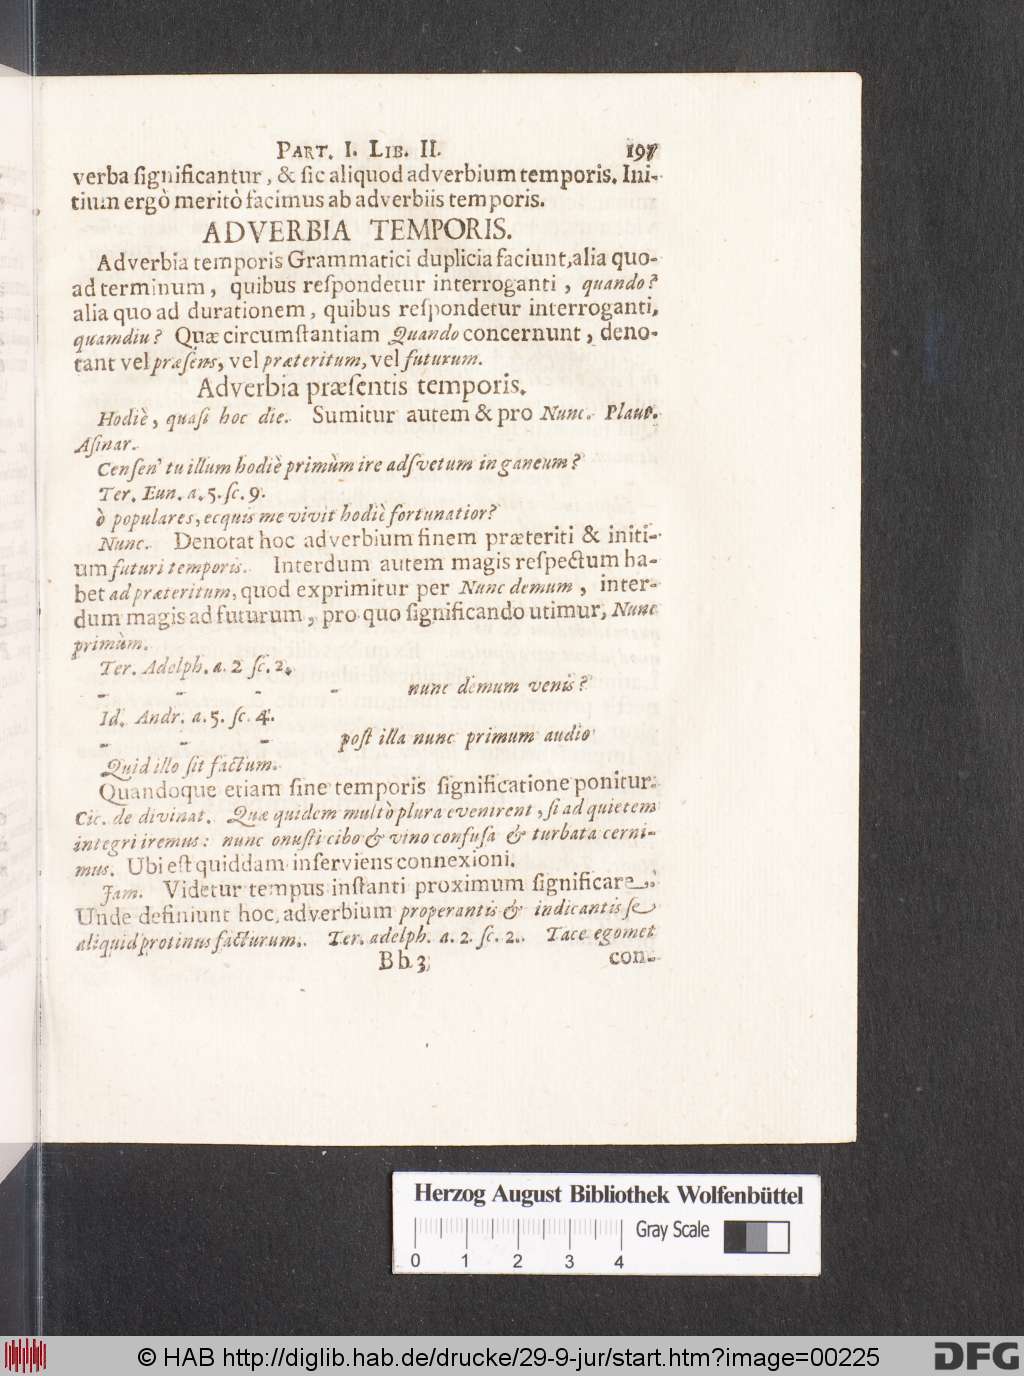 PART. I. LIB. II. 197
verba significantur, & sic aliquod adverbium temporis. Ini-
tium ergò meritò facimus ab adverbiis temporis.
ADVERBIA TEMPORIS.
Adverbia temporis Grammatici duplicia faciunt, alia quo-
ad terminum, quibus respondetur interroganti, quando?
alia quo ad durationem, quibus respondetur interroganti,
quamdiu? Quæ circumstantiam Quando concernunt, deno-
tant vel præsens, vel præteritum, vel futurum.
Adverbia præsentis temporis.
Hodiè, quasi hoc die. Sumitur autem & pro Nunc. Plaut.
Asinar.
Censen' tu illum hodiè primùm ire adsvetum in ganeum?
Ter. Eun. a. 5. sc. 9.
ò populares, ecquis me vivit hodiè fortunatior?
Nunc. Denotat hoc adverbium finem præteriti & initi-
um futuri temporis. Interdum autem magis respectum ha-
bet ad præteritum, quod exprimitur per Nunc demum, inter-
dum magis ad futurum, pro quo significando utimur, Nunc
primùm.
Ter. Adelph. a. 2 sc. 2.
- - - - nunc demum venis?
Id. Andr. a. 5. sc. 4.
- - - post illa nunc primum audio
Quid illo sit factum.
Quandoque etiam sine temporis significatione ponitur.
Cic. de divinat. Quæ quidem multò plura evenirent, si ad quietem
integri iremus: nunc onusti cibo & vino confusa & turbata cerni-
mus. Ubi est quiddam inserviens connexioni.
Jam. Videtur tempus instanti proximum significare.
Unde definiunt hoc adverbium properantis & indicantis se
aliquid protinus facturum. Ter. adelph. a. 2. sc. 2. Tace egomet
Bb 3 con-
Herzog August Bibliothek Wolfenbüttel
Gray Scale
0 1 2 3 4
© HAB http://diglib.hab.de/drucke/29-9-jur/start.htm?image=00225
DFG